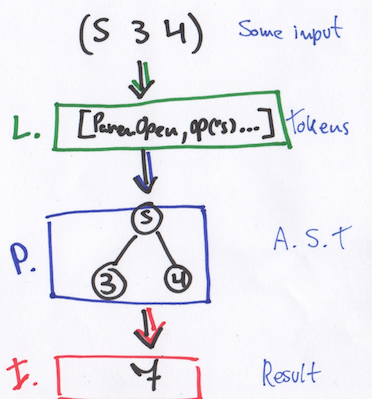 (S 3 4) Some input
L. [ParenOpen, Op("s)...] tokens
S
P. A.S.T
3 4
I. 7 Result